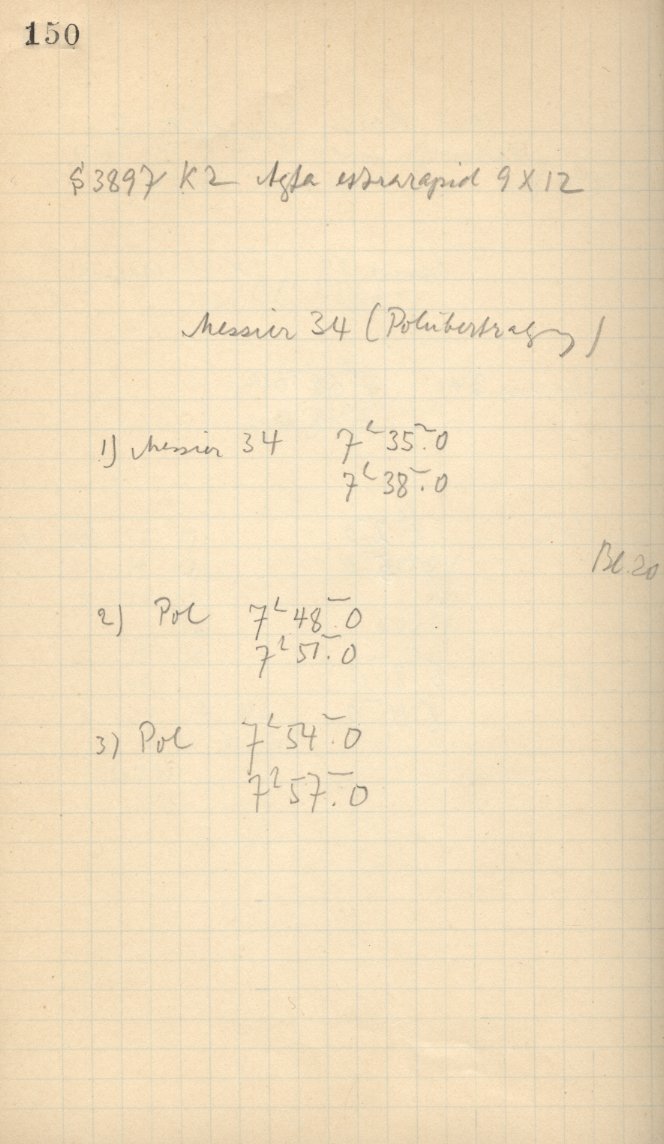 150
S 3897 K2 Agfa extrarapid 9X12
Messier 34 (Polübertragung)
1) Messier 34 7ʰ 35ᵐ.0
7ʰ 38ᵐ.0
Bl. 20
2) Pol 7ʰ 48ᵐ.0
7ʰ 51ᵐ.0
3) Pol 7ʰ 54ᵐ.0
7ʰ 57ᵐ.0